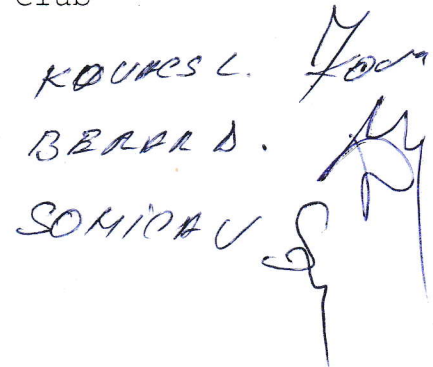 Club
KOVACS L.
BERAR D.
SOMICA V